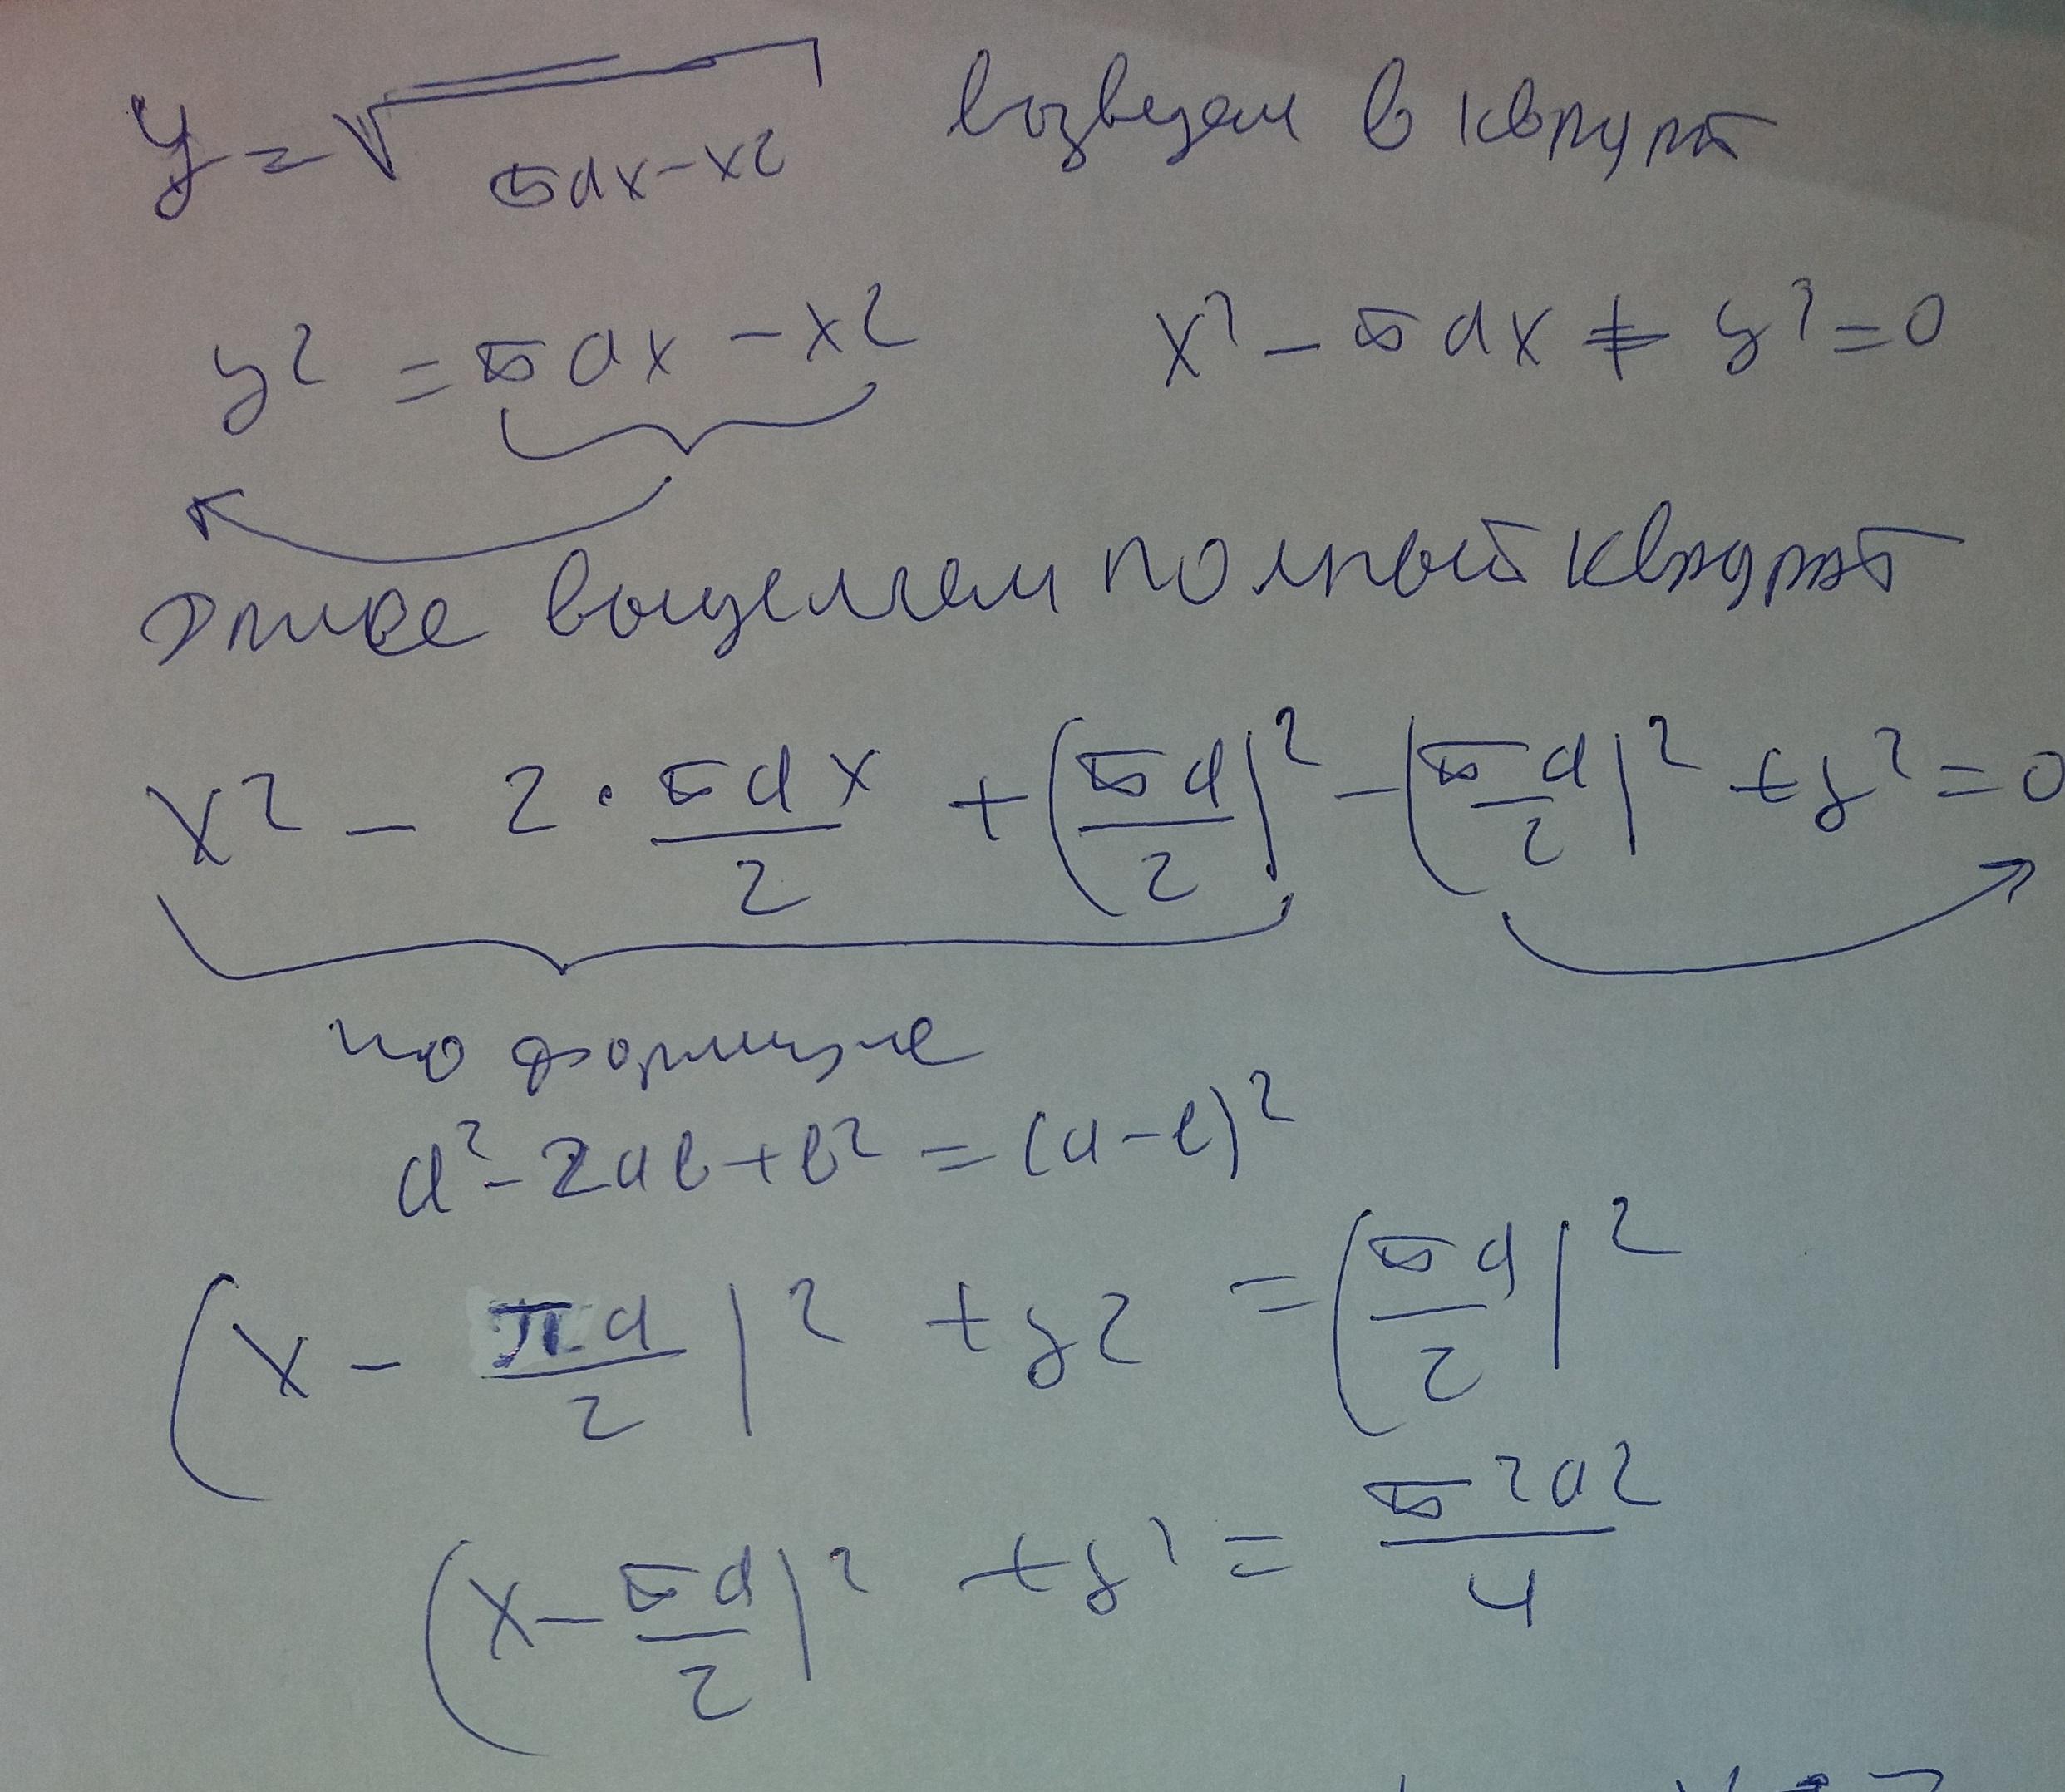 y = √(πax - x2) возведем в квадрат
y2 = πax - x2 x2 - πax + y2 = 0
далее выделяем полный квадрат
x2 - 2 · πax/2 + (πa/2)2 - (πa/2)2 + y2 = 0
по формуле
a2 - 2ab + b2 = (a - b)2
(x - πa/2)2 + y2 = (πa/2)2
(x - πa/2)2 + y2 = π2a2/4